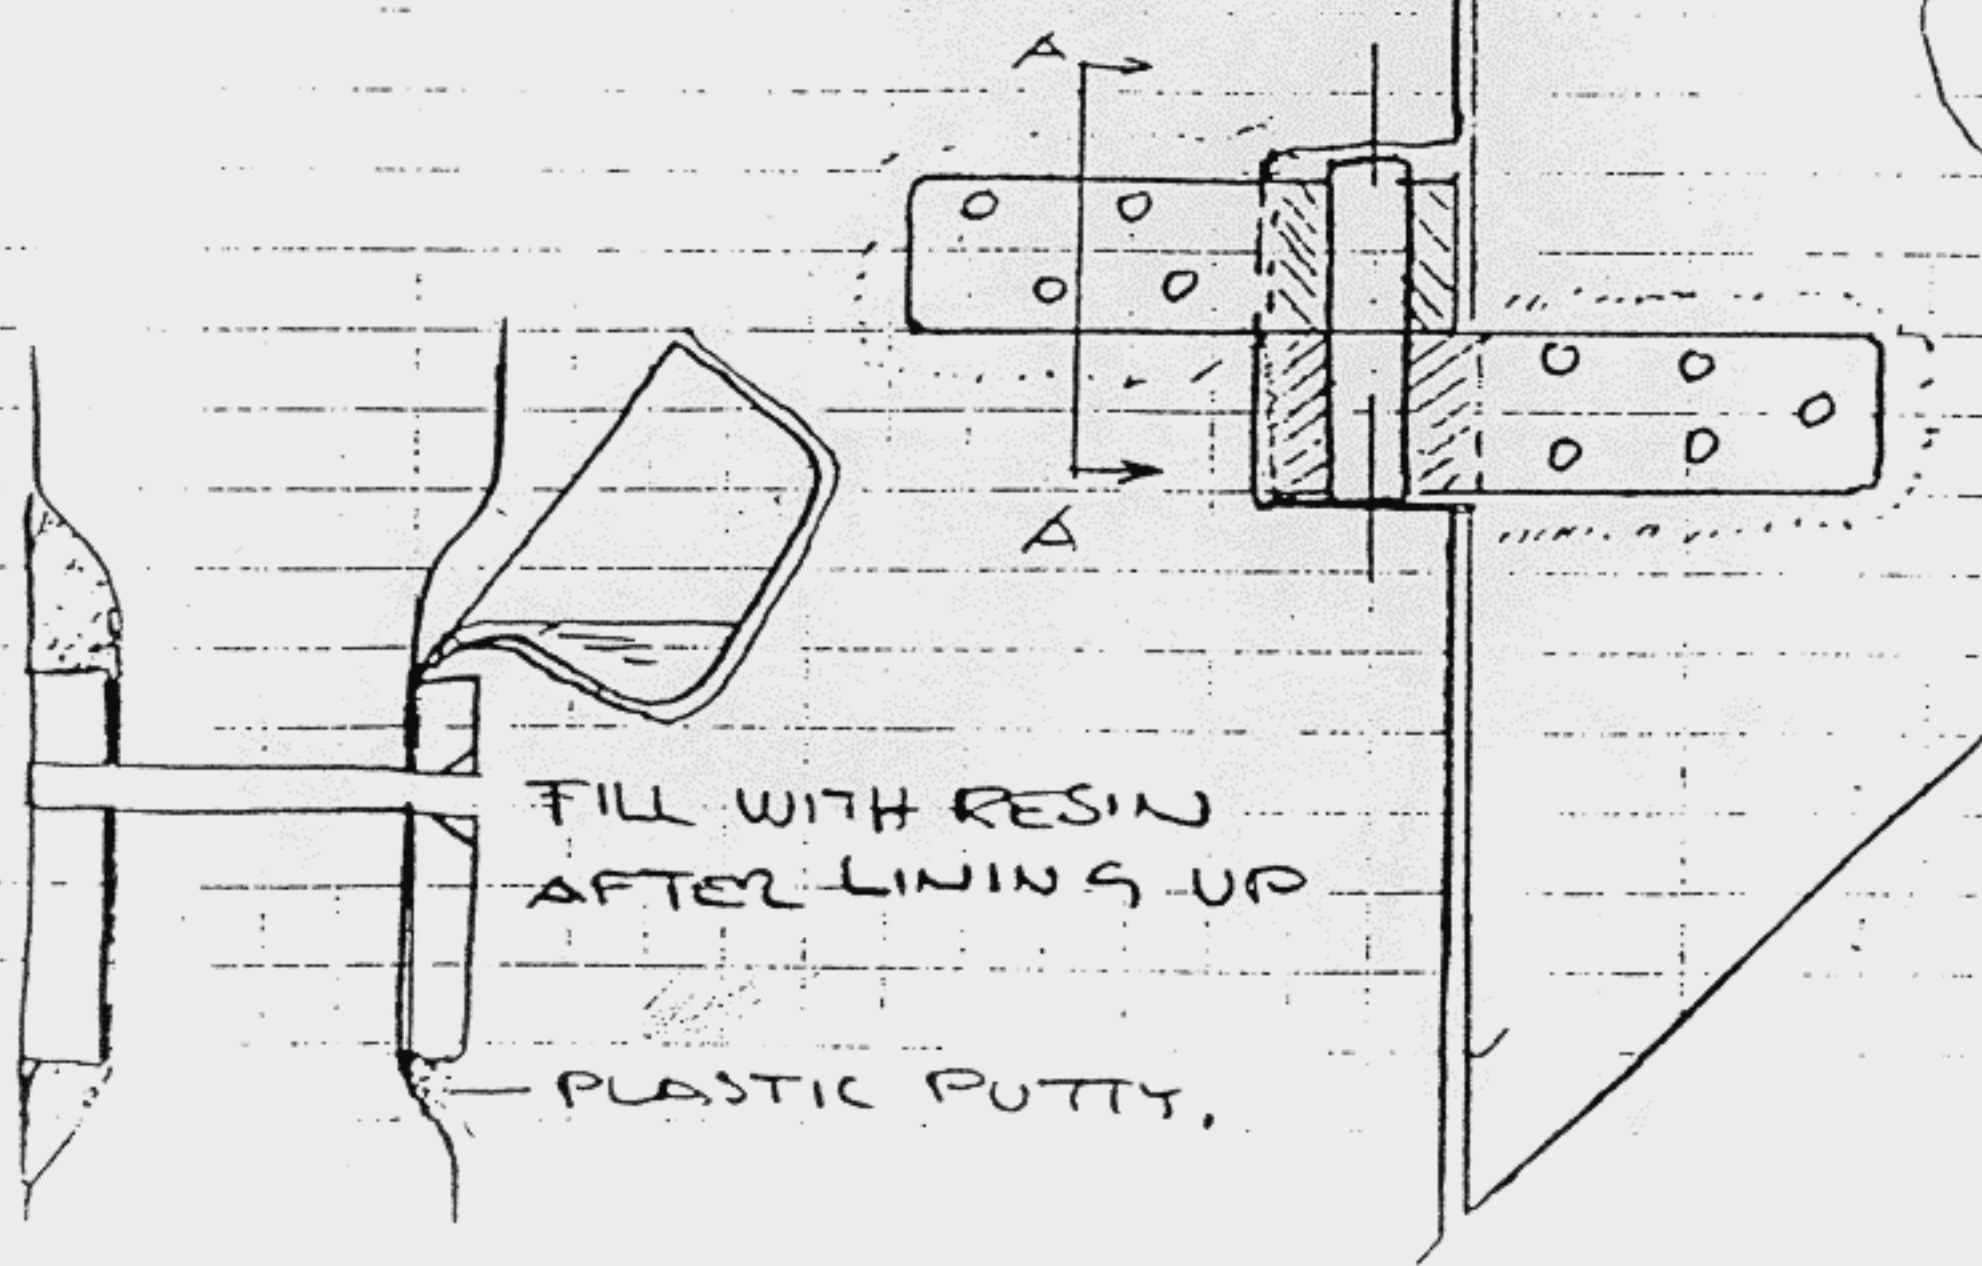 A
A
FILL WITH RESIN
AFTER LINING UP
PLASTIC PUTTY.